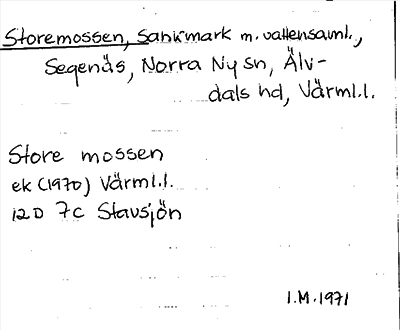 Storemossen, Sankmark m. vattensaml.,
Segenäs, Norra Ny sn, Älv-
dals hd, Värml.l.
Store mossen
ek (1970) Värml.l.
12D 7c Stavsjön
I.M. 1971